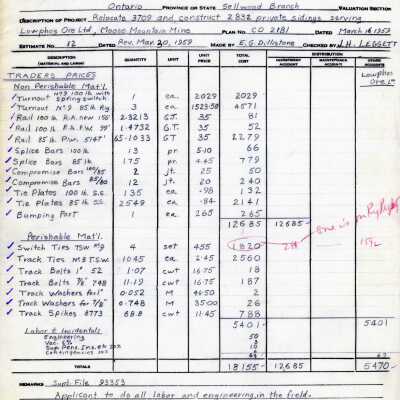 Ontario PROVINCE OR STATE Sellwood Branch VALUATION SECTION
DESCRIPTION OF PROJECT Relocate 3709 and construct 2832 private sidings serving
Lowphos Ore Ltd, Moose Mountain Mine PLAN NO CO 2181 DATED March 16 1959
ESTIMATE NO 12 DATED Rev. Mar. 20, 1959 MADE BY E.G. Dillistone CHECKED BY J.H. LEGGETT
DESCRIPTION (MATERIAL AND LABOR) QUANTITY UNIT UNIT PRICE TOTAL COST DISTRIBUTION INVESTMENT ACCOUNT MAINTENANCE ACCOUNT OTHER ACCOUNTS
TRADERS PRICES Lowphos Ore Ltd
Non Perishable Mat'l.
Turnout No 9 100 lb with spring switch 1 ea. 2029 2029
Turnout No 9 85 lb Rg 3 ea 1523.50 4571
Rail 100 lb R.A. new 156' 2.3213 G.T. 35 81
Rail 100 lb R.A. P.W. 99' 1.4732 G.T. 35 52
Rail 85 lb P.W. 5147' 65.1033 GT 35 2279
Splice Bars 100 lb 13 pr. 5.10 66
Splice Bars 85 lb 175 pr. 4.45 779
Compromise Bars 100/85 2 jt. 25 50
Compromise Bars 85/80 12 jt. 20 240
Tie Plates 100 lb S.S. 135 ea. .98 132
Tie Plates 85 lb S.S. 2549 ea. .84 2141
Bumping Post 1 ea. 265 265
12685 12685
Perishable Mat'l.
Switch Ties TSW No 9 4 set 455 1820
Track Ties M&T S.W. 1045 ea. 2.45 2560
Track Bolts 1" 52 1.07 cwt 16.75 18
Track Bolts 7/8" 748 11.19 cwt 16.75 187
Track Washers for 1" 0.052 M 46.50 2
Track Washers for 7/8" 0.748 M 35.00 26
Track Spikes 8773 68.8 cwt 11.45 788
5401 5401
Labor & Incidentals
Engineering 50
TOTALS 18155 12685 5470
REMARKS Supt. File 93353
Applicant to do all labor and engineering in the field.